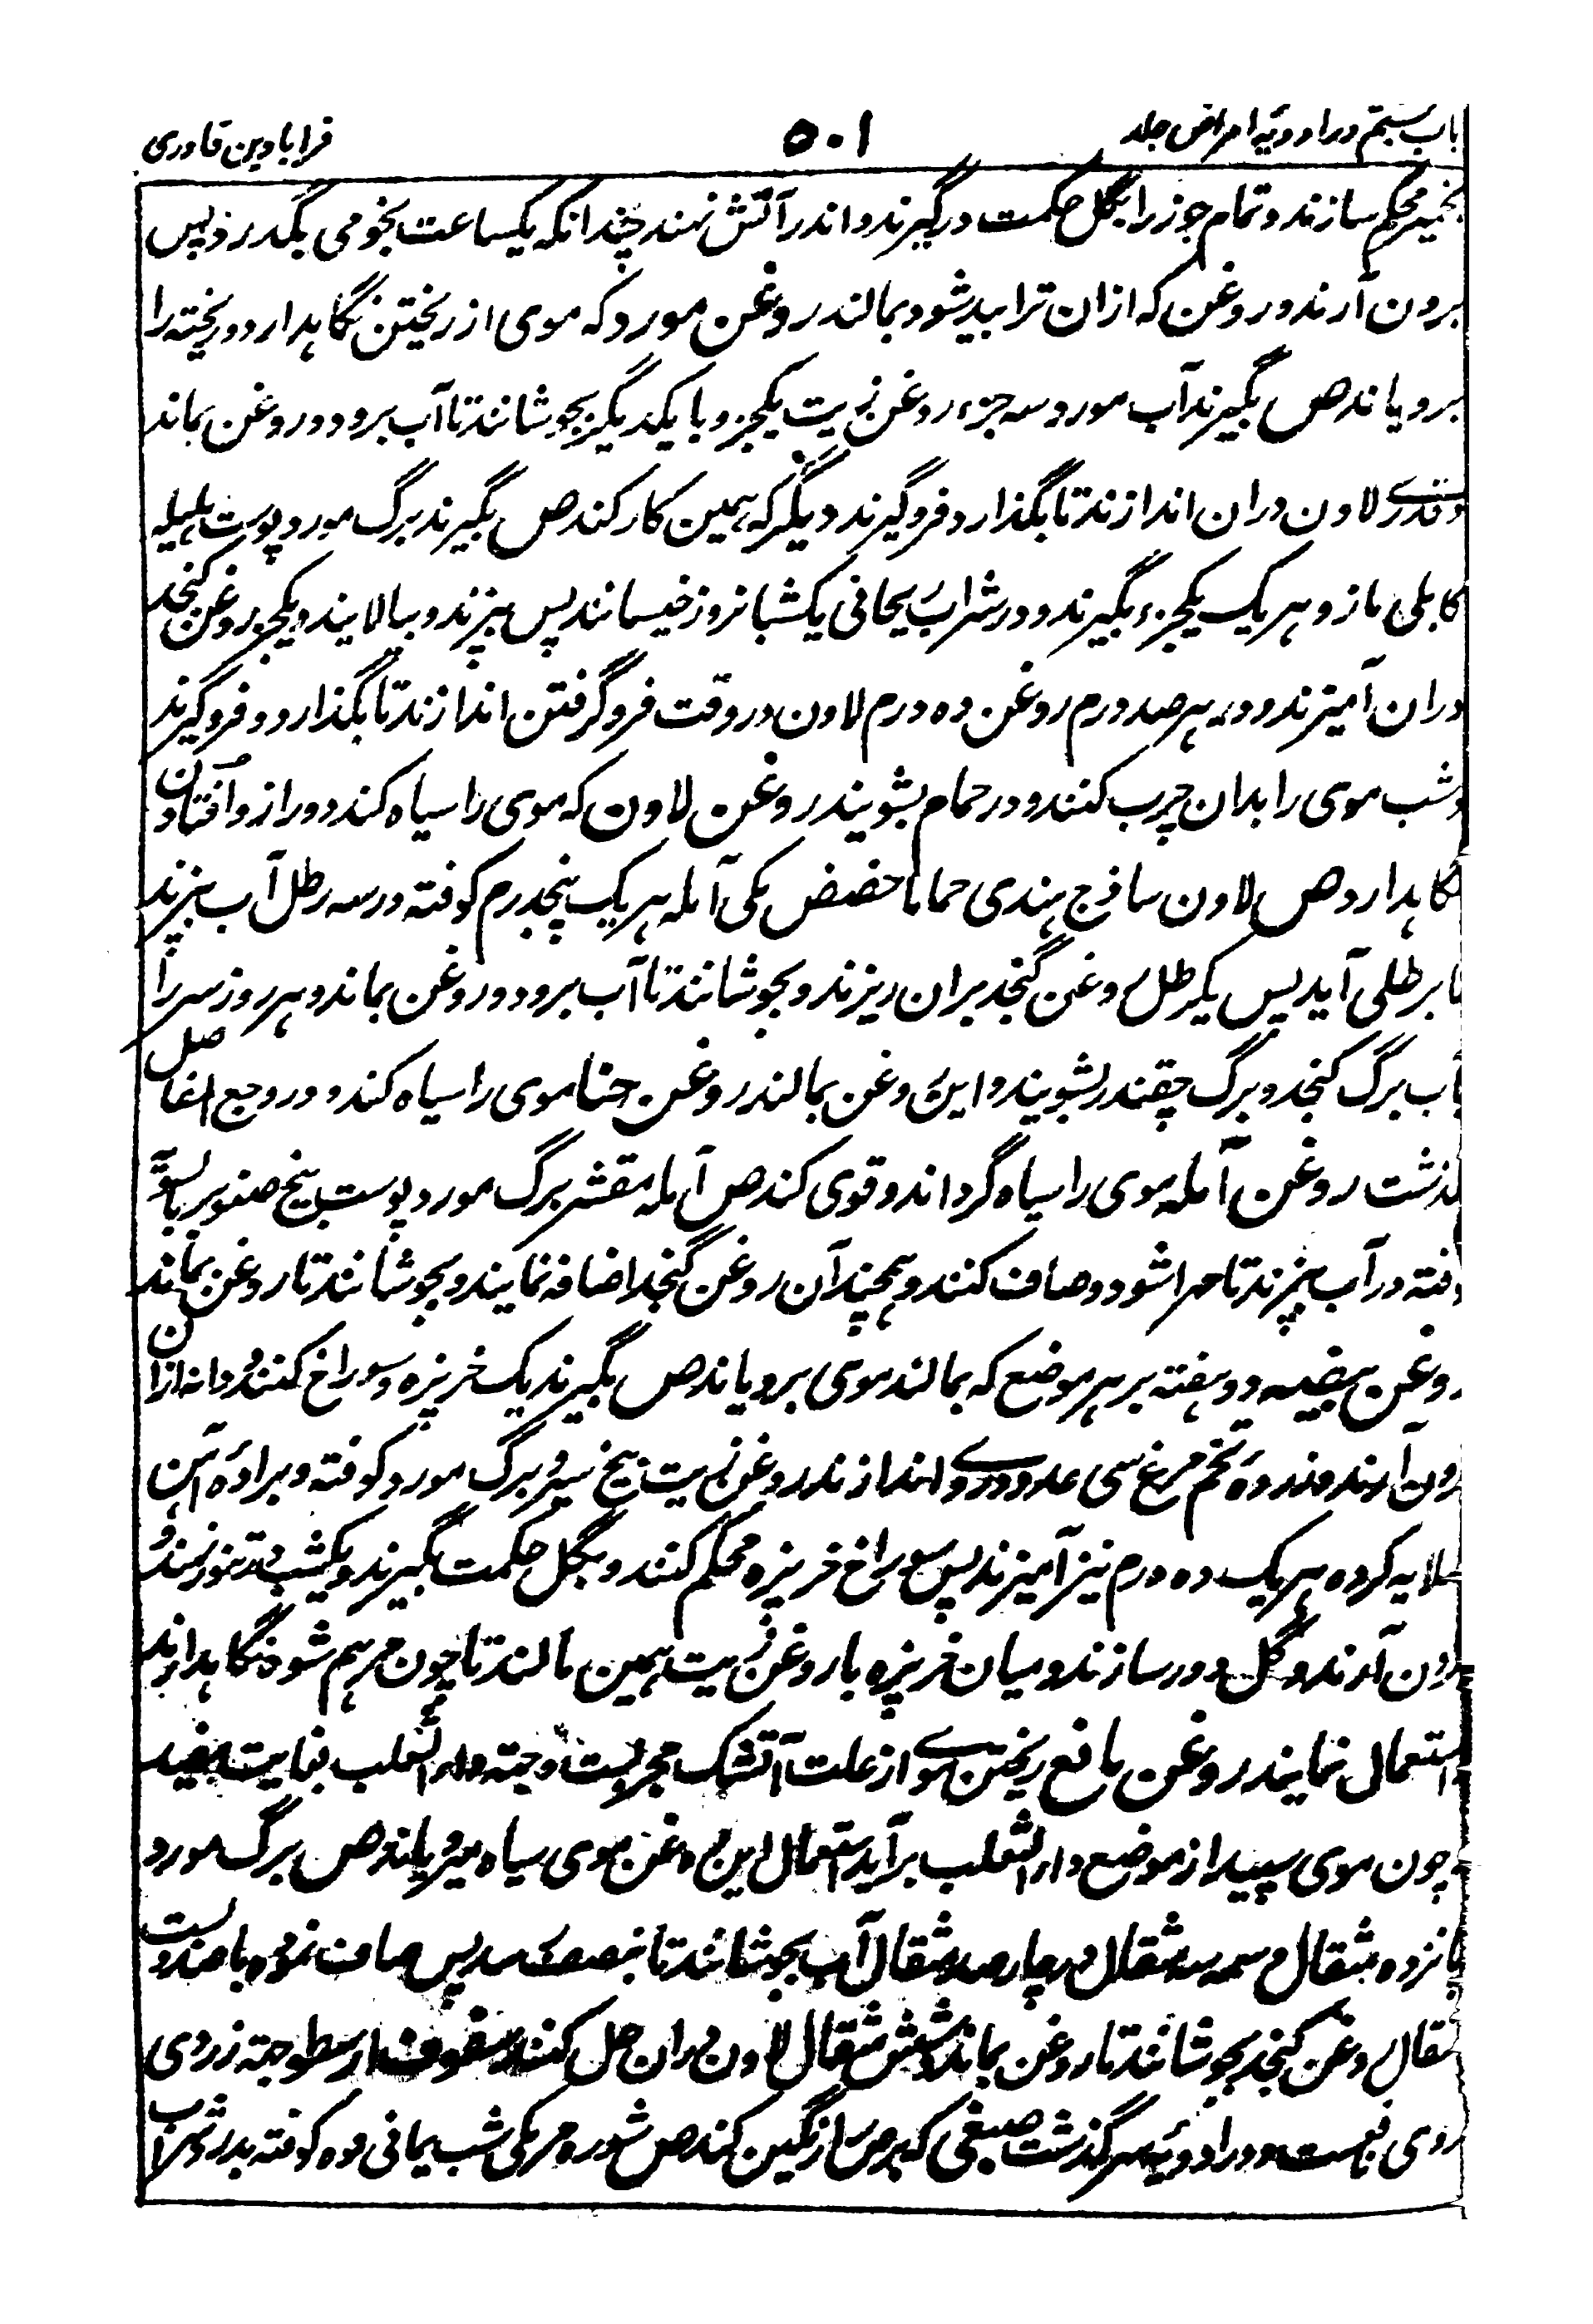 باب بستم در ادویهٔ امراض جلد
۵۰۱
قرابادین قادری
بخمیر محکم سازند و تمام جوز را بگل حکمت درگیرند و اندر آتش نهند چندانکه یکساعت نجومی بگذرد پس
برون آرند و روغن که ازان ترابیده شود بمالند روغن مورد که موی از ریختن نگاهدارد و ریخته را
برویاند ص بگیرند آب مورد سه جزء روغن زیت یکجزو با یکدیگر بجوشانند تا آب برود و روغن بماند
و قدرے لادن دران اندازند تا بگذارد و فروگیرند دیگر که همین کار کند ص بگیرند برگ مورد پوست هلیله
کابلی مازو هر یک یکجزء بگیرند و در شراب ریحانی یکشبانروز خیسانند پس بپزند و بپالایند و یکجزو روغن کنجد
دران آمیزند و در هر صد درم روغن ده درم لادن در وقت فروگرفتن اندازند تا بگذارد و فروگیرند
و شب موی را بدان چرب کنند و در حمام بشویند روغن لادن که موی را سیاه کند و دراز و از افتادن
نگاهدارد ص لادن ساذج هندی حماما حضض مکی آمله هر یک پنجدرم کوفته در سه رطل آب بپزند
تا برطلی آید پس یکرطل روغن کنجد بران ریزند و بجوشانند تا آب برود و روغن بماند و هر روز سر را
بآب برگ کنجد و برگ چقندر بشویند و این روغن بمالند روغن حنا موی را سیاه کند و در وجع المفاصل
گذشت روغن آمله موی را سیاه گرداند و قوی کند ص آمله مقشر برگ مورد پوست بیخ صنوبر بالسویّه
کوفته در آب بپزند تا مهرا شود و صاف کنند و همچند آن روغن کنجد اضافه نمایند و بجوشانند تا روغن بماند
روغن بیضه دو هفته بر هر موضع که بمالند موی برویاند ص بگیرند یک خربزه و سوراخ کنند و دانه ازان
برون آرند و زردهٔ تخم مرغ سی عدد در وے اندازند روغن زیت بیخ سیر و برگ مورد کوفته و برادهٔ آهن
صلایه کرده هر یک ده درم نیز آمیزند پس سوراخ خربزه محکم کنند و بگل حکمت بگیرند و یکشب در تنور نهند و
برون آرند و گل دور سازند و میان خربزه با روغن زیت همین مالند تا چون مرهم شود نگاهدارند
و استعمال نمایند روغن مانع ریختن موے از علت آتشک مجربست و جهته داء الثعلب بغایت مفید
و چون موی سپید از موضع داء الثعلب برآید استعمال این روغن موی سیاه میرویاند ص برگ مورد
پانزده مثقال وسمه سه مثقال در چارصد مثقال آب بجوشانند تا بنصف رسد پس صاف نموده با صد و بیست
مثقال روغن کنجد بجوشانند تا روغن بماند و شش مثقال لادن دران حل کنند سفوف ارسطو جهته زردی
روی نافعست و در ادویهٔ سر گذشت صبغی که برص را رنگین کند ص شوره مر مکی شب یمانی فوه کوفته بدردی شراب